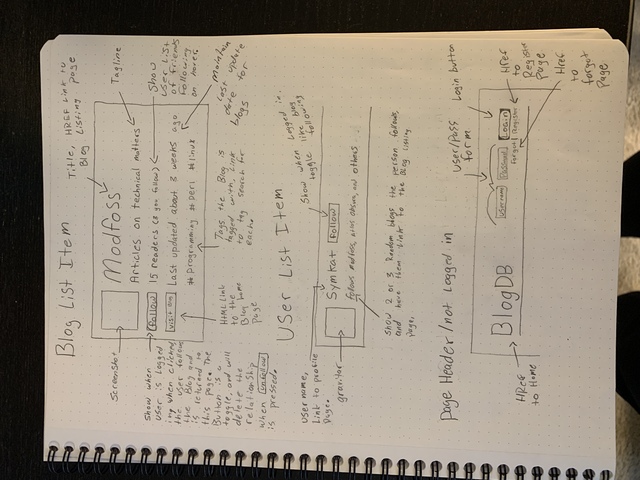 Blog List Item
Title, HREF Link to
Blog Listing page
Tagline
Screenshot
Modfoss
Articles on technical matters
Follow 15 readers (8 you follow)
Visit Blog Last updated about 3 weeks ago
#programming #perl #linux
Show
User List
of friends
Following
on here.
Show when
User is Logged
in, when clicking
the User follow
the Blog and
is returned to
this page. The
Button is a
toggle, and will
delete the
relationship
when
is pressed.
HTML Link
to the
Blog home
page
Tags the Blog is
tagged with, Link
to tag search for
each.
last
update
for
blogs
User List Item
username,
Link to profile
page.
gravitar
Symkat Follow
Follows modfoss, and others
Show when Logged in.
toggle like blog
following
Show 2 or 3 Random blogs the person follows,
and have them link to the Blog listing
page.
page Header/not Logged in
BlogDB
HRef
to Home
user/pass
form
Login button
Login
forgot Register
HRef
to
Register
page
HRef
to
forgot
page